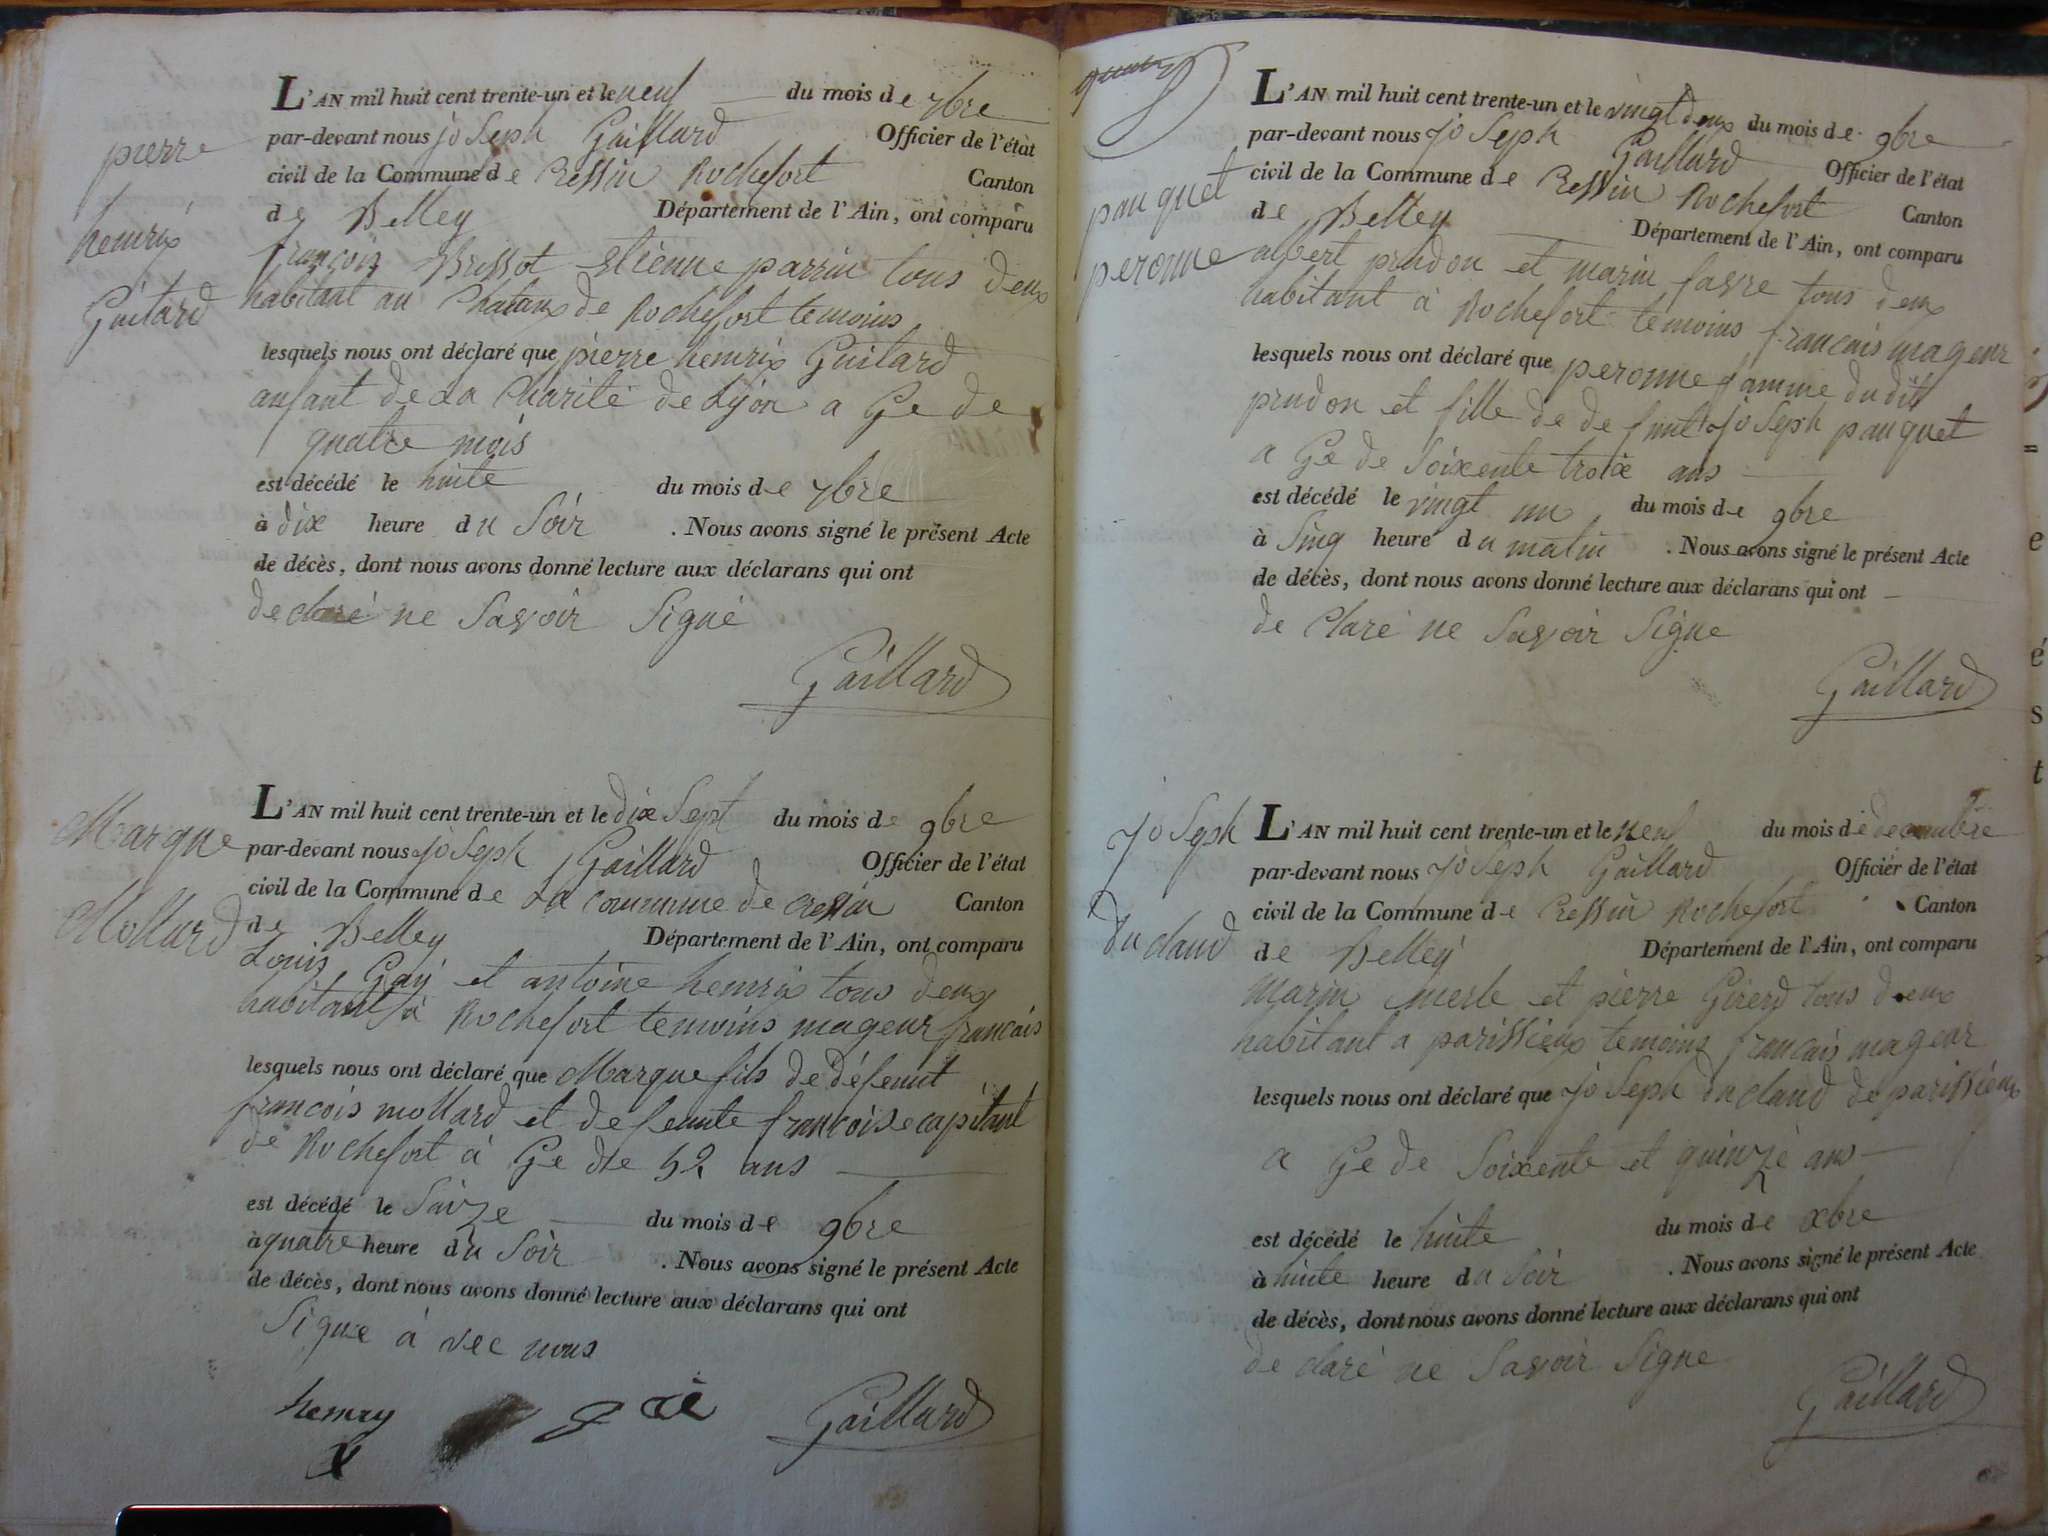 pierre
henrix
Guitard
L'AN mil huit cent trente-un et le neuf du mois de 7bre
par-devant nous joSeph Gaillard Officier de l'état
civil de la Commune de CreSSin Rochefort Canton
de Belley Département de l'Ain, ont comparu
françois BriSSot etienne parrin tous deux
habitant au Chataux de Rochefort temoins
lesquels nous ont déclaré que pierre henrix Guitard
anfant de La Charité de Lyon a Ge de
quatre mois
est décédé le huite du mois de 7bre
à dix heure du Soir . Nous avons signé le présent Acte
de décès, dont nous avons donné lecture aux déclarans qui ont
declaré ne Savoir Signé
Gaillard
Marque
Mollard
L'AN mil huit cent trente-un et le dix Sept du mois de 9bre
par-devant nous joSeph Gaillard Officier de l'état
civil de la Commune de La commune de creSSin Canton
de Belley Département de l'Ain, ont comparu
Louis Gay et antoine henrix tous deux
habitant à Rochefort temoins mageur francais
lesquels nous ont déclaré que Marque fils de défeunt
francois mollard et defeunte francoise capitant
de Rochefort à Ge de 52 ans
est décédé le Saize du mois de 9bre
à quatre heure du Soir . Nous avons signé le présent Acte
de décès, dont nous avons donné lecture aux déclarans qui ont
Signe à vec nous
henry Gaillard
pauquet
peronne
L'AN mil huit cent trente-un et le vingt deux du mois de 9bre
par-devant nous joSeph Gaillard Officier de l'état
civil de la Commune de CreSSin Rochefort Canton
de Belley Département de l'Ain, ont comparu
albert prudon et marin favre tous deux
habitant à Rochefort temoins francais mageur
lesquels nous ont déclaré que peronne famme du dit
prudon et fille de de funt joSeph pauquet
a Ge de Soixente troix ans
est décédé le vingt un du mois de 9bre
à Sinq heure du matin . Nous avons signé le présent Acte
de décès, dont nous avons donné lecture aux déclarans qui ont
de Claré ne Savoir Signe
Gaillard
joSeph
du claud
L'AN mil huit cent trente-un et le neuf du mois de decembre
par-devant nous joSeph Gaillard Officier de l'état
civil de la Commune de CreSSin Rochefort Canton
de Belley Département de l'Ain, ont comparu
marin merle et pierre Girerd tous deux
habitant a pariSSieux temoins francais mageur
lesquels nous ont déclaré que joSeph du claud de pariSSieux
a Ge de Soixente et quinze ans
est décédé le huite du mois de xbre
à huite heure du Soir . Nous avons signé le présent Acte
de décès, dont nous avons donné lecture aux déclarans qui ont
de claré ne Savoir Signe
Gaillard